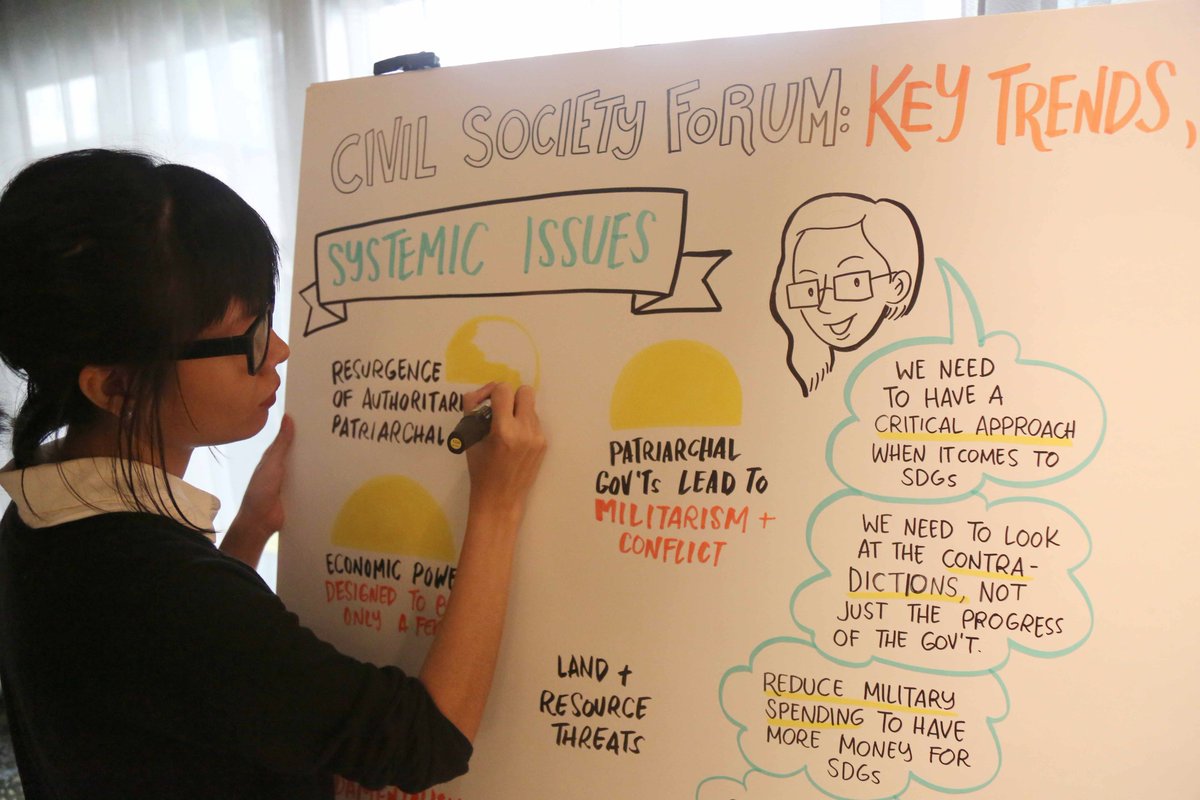 CIVIL SOCIETY FORUM: KEY TRENDS,
SYSTEMIC ISSUES
RESURGENCE
OF
PATRIARCHAL
PATRIARCHAL
GOV'TS LEAD TO
MILITARISM +
CONFLICT
ECONOMIC
DESIGNED TO
ONLY A
LAND +
RESOURCE
THREATS
WE NEED
TO HAVE A
CRITICAL APPROACH
WHEN IT COMES TO
SDGs
WE NEED TO LOOK
AT THE CONTRA-
DICTIONS, NOT
JUST THE PROGRESS
OF THE GOV'T.
REDUCE MILITARY
SPENDING TO HAVE
MORE MONEY FOR
SDGs